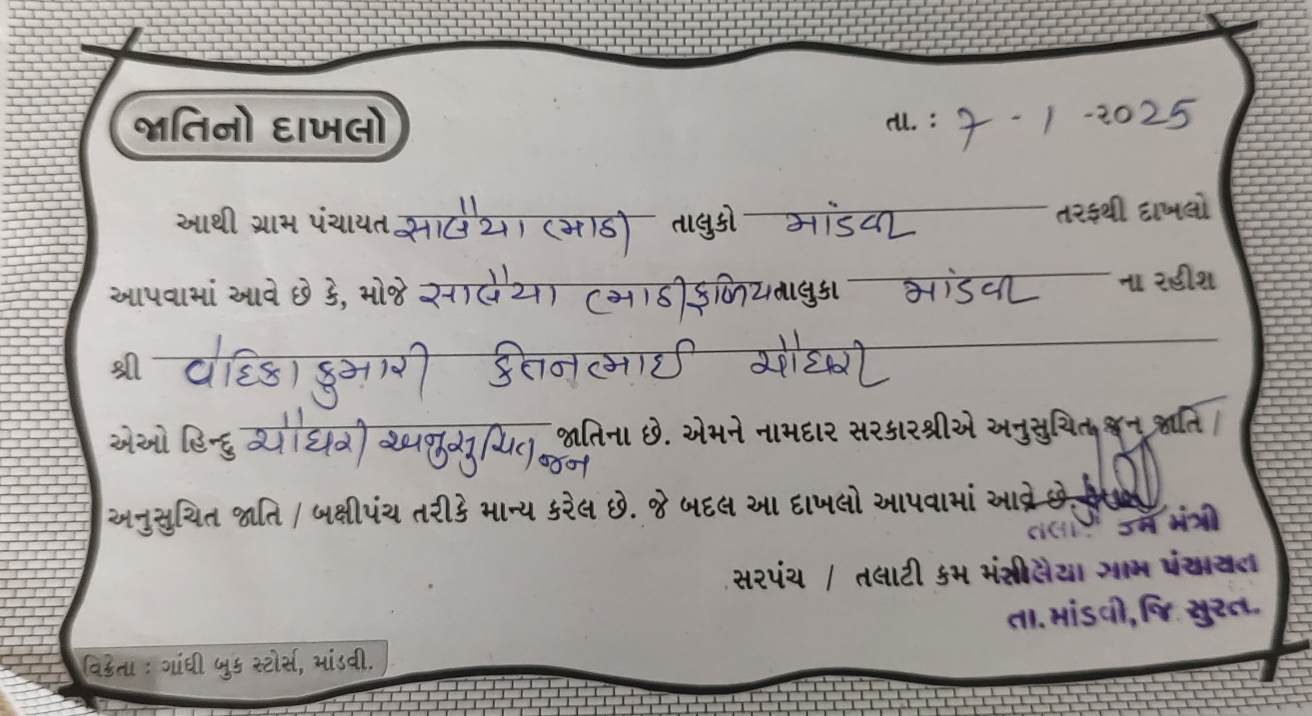 જાતિનો દાખલો
તા. : 7 - 1 -2025
આથી ગ્રામ પંચાયત સાલૈયા (માઠી) તાલુકો માંડવી તરફથી દાખલો
આપવામાં આવે છે કે, મોજે સાલૈયા (માઠી ફળિય તાલુકા માંડવી ના રહીશ
શ્રી વેદિકાકુમારી કેતનભાઈ ચૌધરી
એઓ હિન્દુ ચૌધરી અનુસુચિત જન જાતિના છે. એમને નામદાર સરકારશ્રીએ અનુસુચિત જન જાતિ /
અનુસુચિત જાતિ / બક્ષીપંચ તરીકે માન્ય કરેલ છે. જે બદલ આ દાખલો આપવામાં આવે છે
કમ મંત્રી
સરપંચ / તલાટી કમ મંત્રી
ગ્રામ પંચાયત
તા. માંડવી, જિ. સુરત.
વિક્રેતા : ગાંધી બુક સ્ટોર્સ, માંડવી.